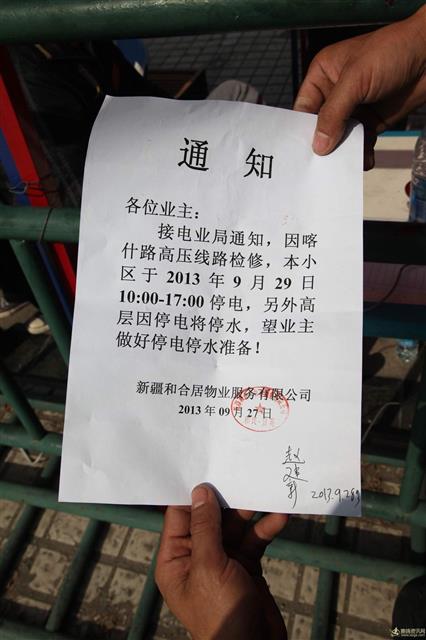 通 知
各位业主：
接电业局通知，因喀
什路高压线路检修，本小
区于 2013 年 9 月 29 日
10:00-17:00 停电，另外高
层因停电将停水，望业主
做好停电停水准备！
新疆和合居物业服务有限公司
2013 年 09 月 27 日